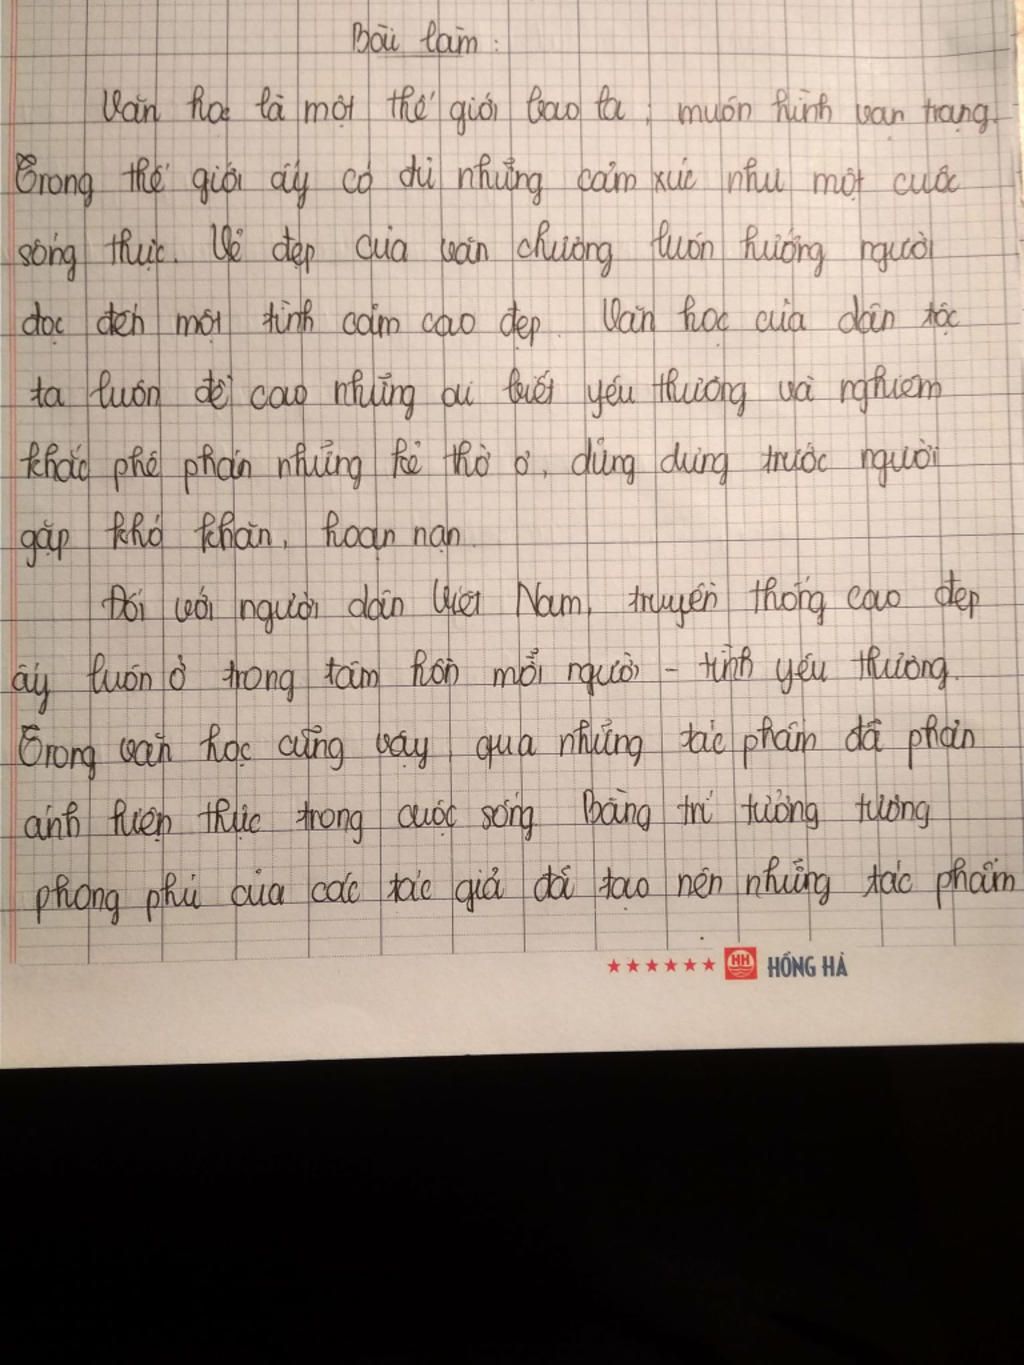 Bài làm:
Văn học là một thế giới bao la, muôn hình vạn trạng.
Trong thế giới ấy có đủ những cảm xúc như một cuộc
sống thực. Vẻ đẹp của văn chương luôn hướng người
đọc đến một tình cảm cao đẹp. Văn học của dân tộc
ta luôn đề cao những ai biết yêu thương và nghiêm
khắc phê phán những kẻ thờ ơ, dửng dưng trước người
gặp khó khăn, hoạn nạn.
Đối với người dân Việt Nam, truyền thống cao đẹp
ấy luôn ở trong tâm hồn mỗi người - tình yêu thương.
Trong văn học cũng vậy, qua những tác phẩm đã phản
ánh hiện thực trong cuộc sống. Bằng trí tưởng tượng
phong phú của các tác giả đã tạo nên những tác phẩm
HH HỒNG HÀ